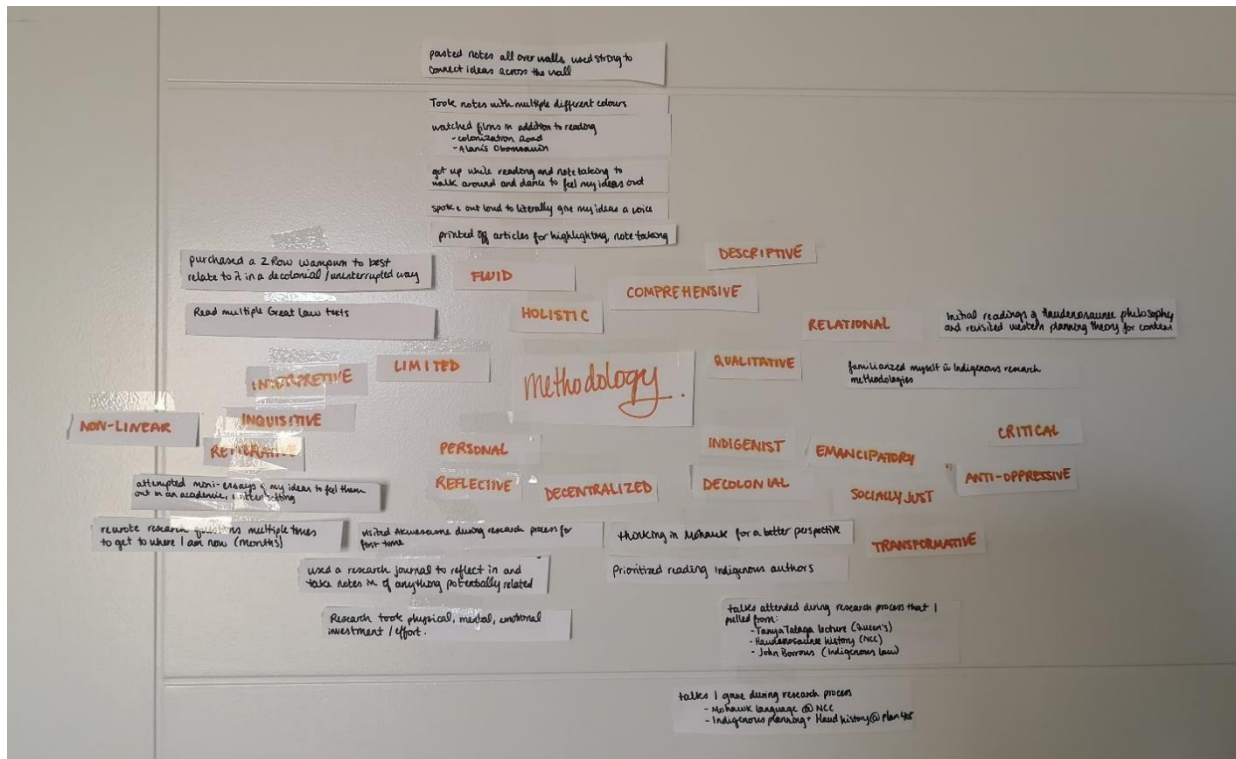 posted notes all over walls, used strong to
connect ideas across the wall
Took notes with multiple different colours
watched films in addition to reading
- colonization Road
- Alanis Obomsawin
got up while reading and note taking to
walk around and dance to feel my ideas out
spoke out loud to literally give my ideas a voice
printed off articles for highlighting, note taking
DESCRIPTIVE
purchased a 2 Row Wampum to best
relate to it in a decolonial / uninterrupted way
FLUID
COMPREHENSIVE
Read multiple Great Law texts
HOLISTIC
RELATIONAL
Initial readings of Haudenosaunee philosophy
and revisited western planning theory for context
INTERPRETIVE
LIMITED
methodology.
QUALITATIVE
familiarized myself w Indigenous research
methodologies
NON-LINEAR
INQUISITIVE
REITERATIVE
PERSONAL
INDIGENIST
EMANCIPATORY
CRITICAL
attempted mini-essays of my ideas to feel them
out in an academic, written setting
REFLECTIVE
DECENTRALIZED
DECOLONIAL
SOCIALLY JUST
ANTI-OPPRESSIVE
rewrote research questions multiple times
to get to where I am now (months)
visited Akwesasne during research process for
first time
thinking in Mohawk for a better perspective
TRANSFORMATIVE
used a research journal to reflect in and
take notes in of anything potentially related
Prioritized reading Indigenous authors
Research took physical, mental, emotional
investment / effort.
talks attended during research process that I
pulled from:
- Tanya Talaga lecture (Queen's)
- Haudenosaunee history (NCC)
- John Borrows (Indigenous law)
talks I gave during research process
- Mohawk language @ NCC
- Indigenous planning + Haud history @ plan